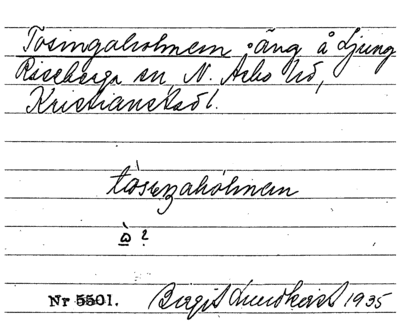 Tosingaholmem äng å Ljung
Riseberga sn, N. Åsbo hd,
Kristianstads l.
tòsıŋahólmem
ὼ ?
Nr 5501. Birgit Lundkvist 1935